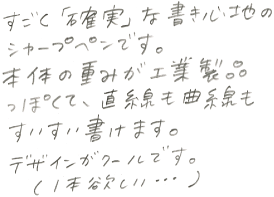 すごく「確実」な書き心地の
シャープペンです。
本体の重みが工業製品
っぽくて、直線も曲線も
すいすい書けます。
デザインがクールです。
(1本欲しい…)